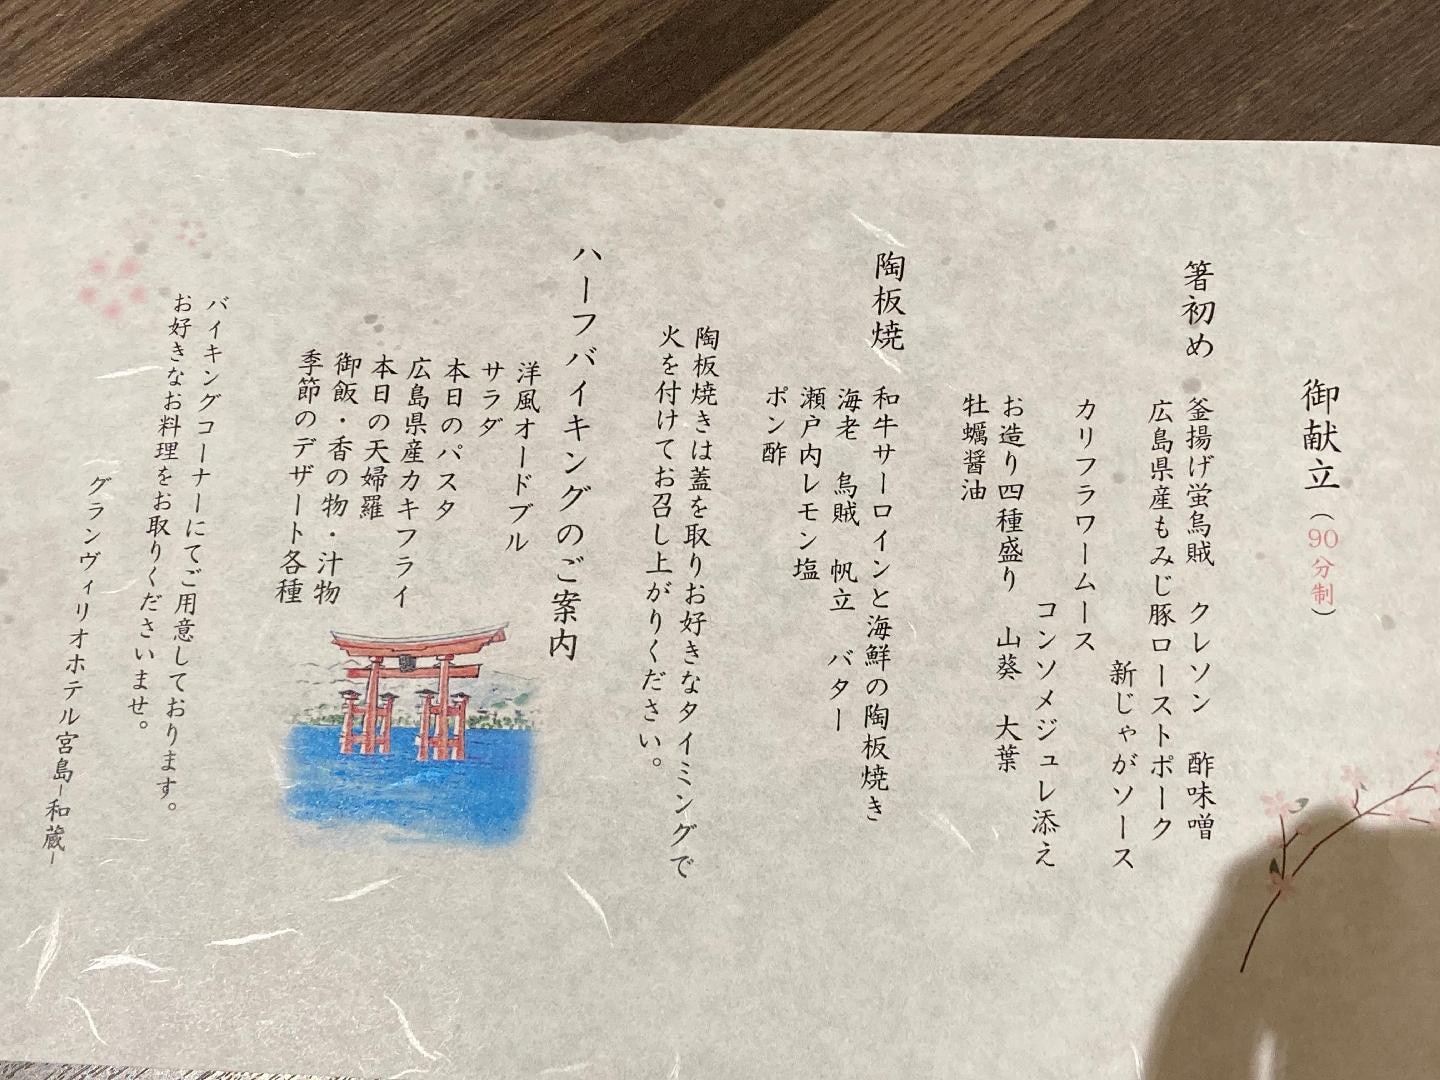 御献立（90分制）
箸初め
釜揚げ蛍烏賊　クレソン　酢味噌
広島県産もみじ豚ローストポーク
新じゃがソース
カリフラワームース
コンソメジュレ添え
お造り四種盛り　山葵　大葉
牡蠣醤油
陶板焼
和牛サーロインと海鮮の陶板焼き
海老　烏賊　帆立　バター
瀬戸内レモン塩
ポン酢
陶板焼きは蓋を取りお好きなタイミングで
火を付けてお召し上がりください。
ハーフバイキングのご案内
洋風オードブル
サラダ
本日のパスタ
広島県産カキフライ
本日の天婦羅
御飯・香の物・汁物
季節のデザート各種
バイキングコーナーにてご用意しております。
お好きなお料理をお取りくださいませ。
グランヴィリオホテル宮島-和蔵-